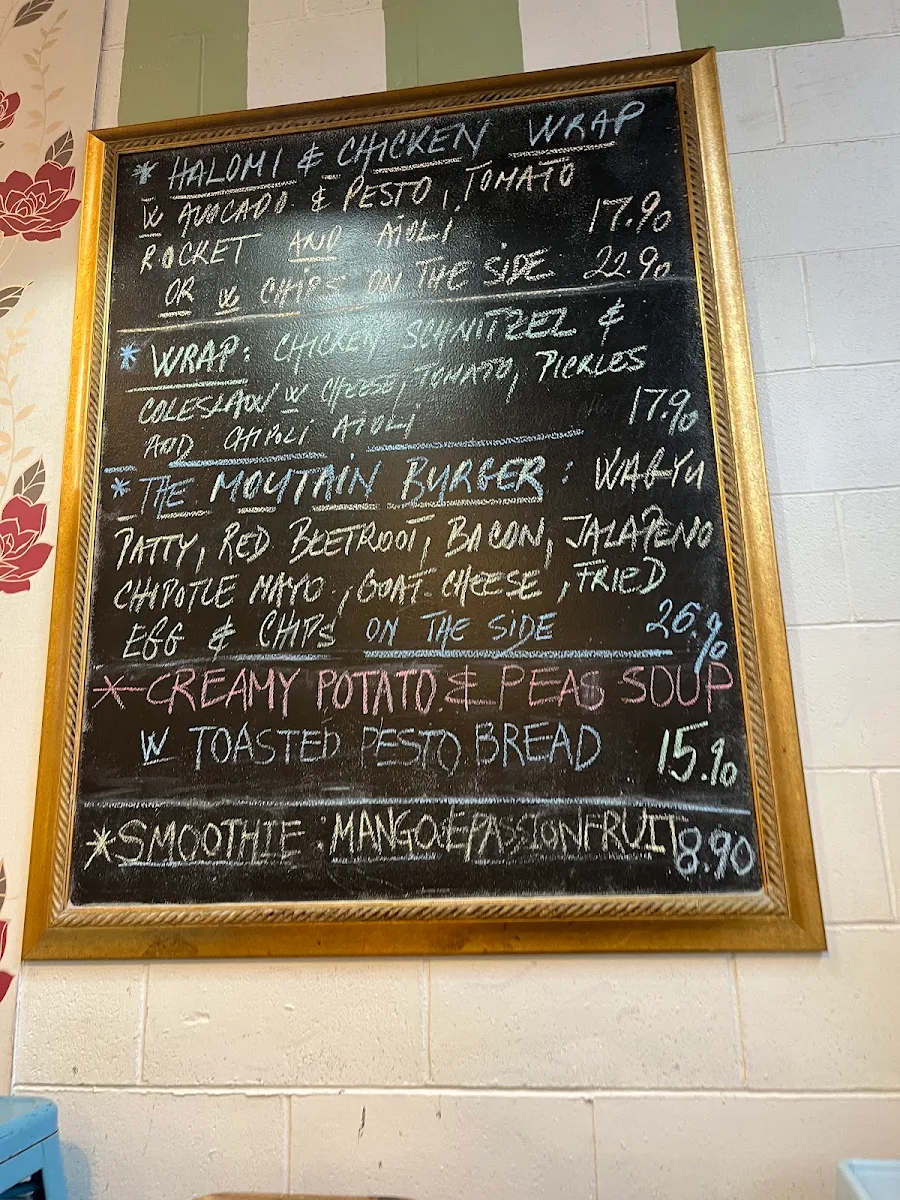 * HALOMI & CHICKEN WRAP
W AVOCADO & PESTO, TOMATO
ROCKET AND AIOLI 17.90
OR W CHIPS ON THE SIDE 22.90
* WRAP: CHICKEN SCHNITZEL &
COLESLAW W CHEESE, TOMATO, PICKLES
AND CHIPOLI AIOLI 17.90
* THE MOUTAIN BURGER: WAGYU
PATTY, RED BEETROOT, BACON, JALAPENO
CHIPOTLE MAYO, GOAT CHEESE, FRIED
EGG & CHIPS ON THE SIDE 26.90
* CREAMY POTATO & PEAS SOUP
W TOASTED PESTO BREAD 15.90
* SMOOTHIE: MANGO & PASSIONFRUIT 8.90